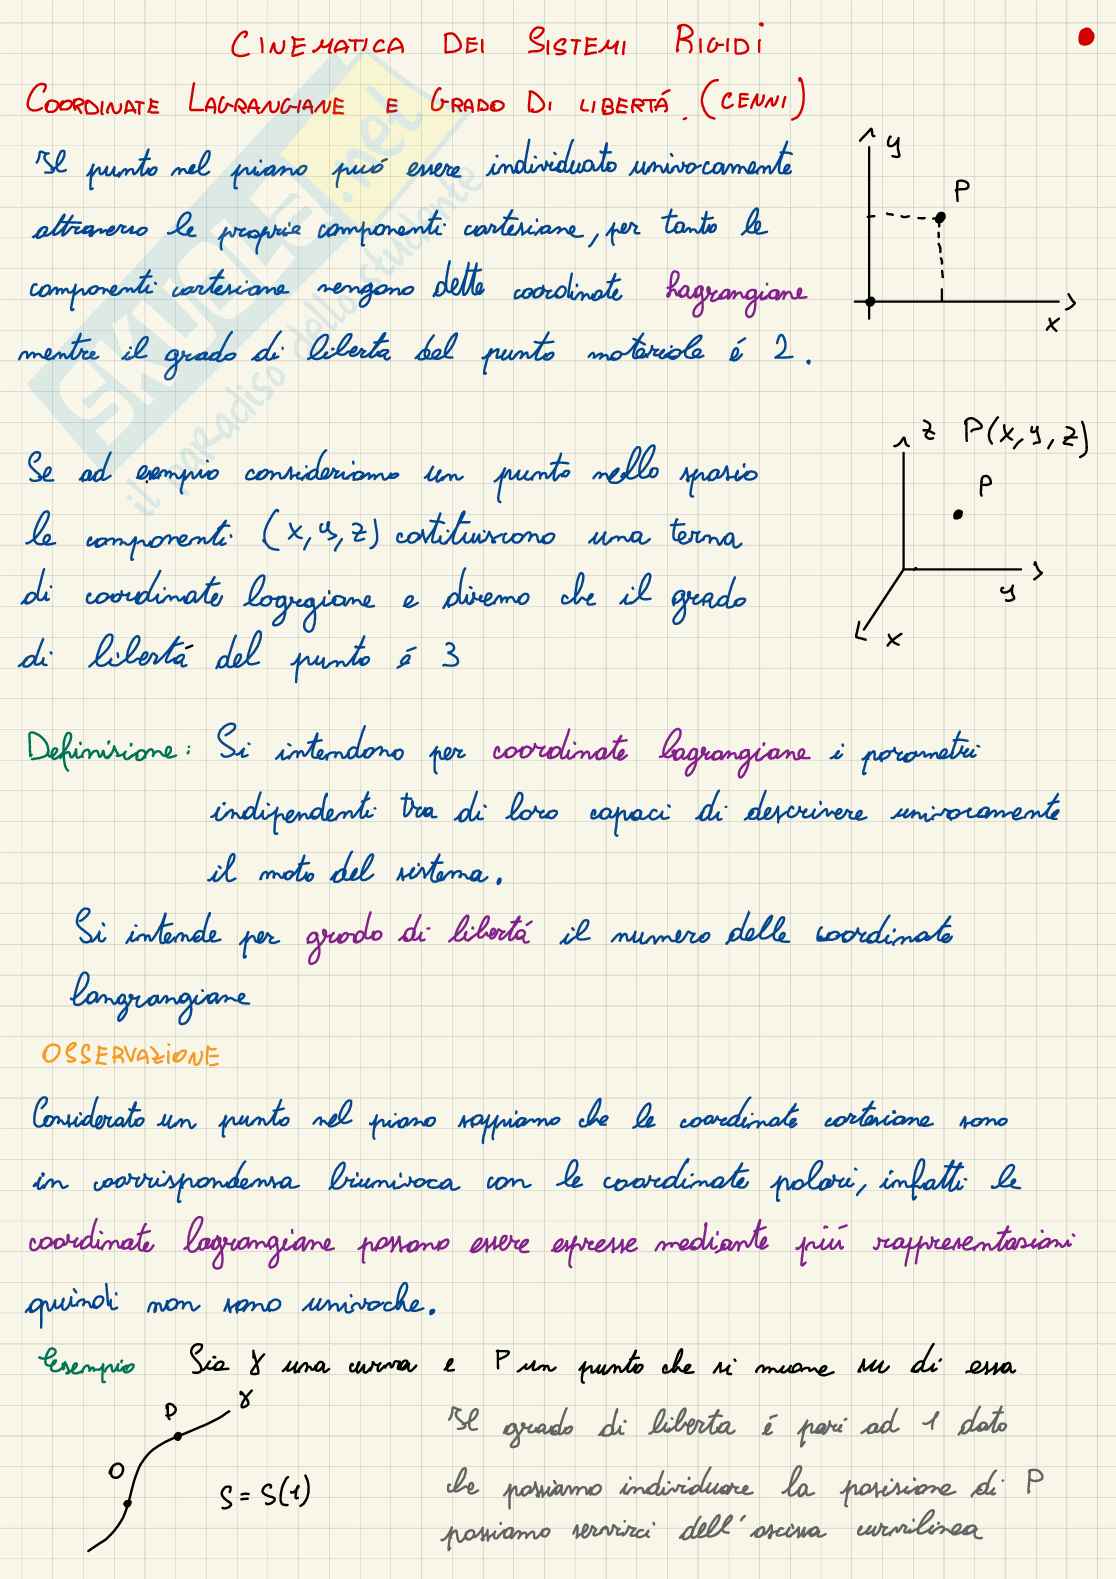 CINEMATICA DEI SISTEMI RIGIDI
COORDINATE LAGRANGIANE E GRADO DI LIBERTÁ. (CENNI)
Il punto nel piano puó essere individuato univocamente
attraverso le proprie componenti cartesiane, per tanto le
componenti cartesiane vengono dette coordinate hagrangiane
mentre il grado di liberta del punto materiale é 2.
y
P
x
Se ad esempio consideriamo un punto nello spazio
le componenti (x, y, z) costituiscono una terna
di coordinate logrgiane e diremo che il grado
di libertá del punto é 3
z P(x, y, z)
P
y
x
Definizione: Si intendono per coordinate lagrangiane i parametri
indipendenti tra di loro capaci di descrivere univocamente
il moto del sistema.
Si intende per grado di libertá il numero delle coordinate
langrangiane
OSSERVAZIONE
Considerato un punto nel piano sappiamo che le coordinate cartesiane sono
in coorrispondenza biunivoca con le coordinate polari, infatti le
coordinate lagrangiane possono essere espresse mediante piú rappresentazioni
quindi non sono univoche.
Esempio Sia γ una curva e P un punto che si muove su di essa
P γ
O
S = S(t)
Il grado di liberta é pari ad 1 dato
che possiamo individuare la posizione di P
possiamo servirci dell'ascissa curvilinea
SKUOLA.net
il paradiso dello studente